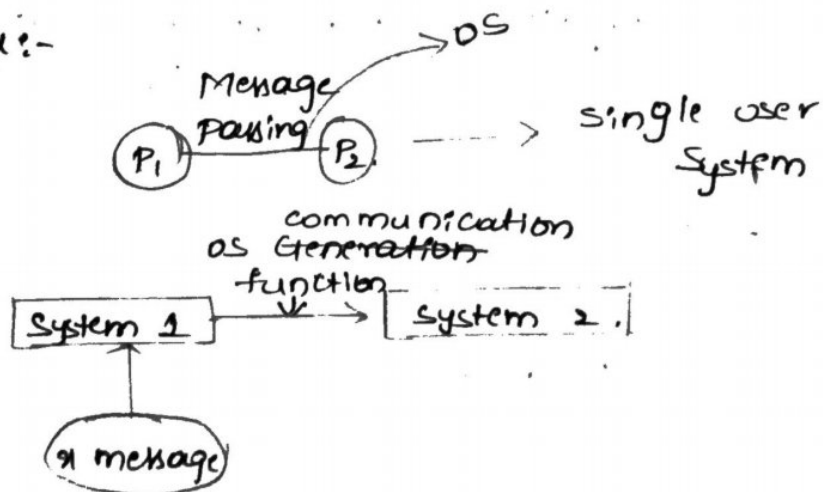 OS
Message
passing
P1
P2
single user
System
communication
OS Generation
function
System 1
System 2.
message